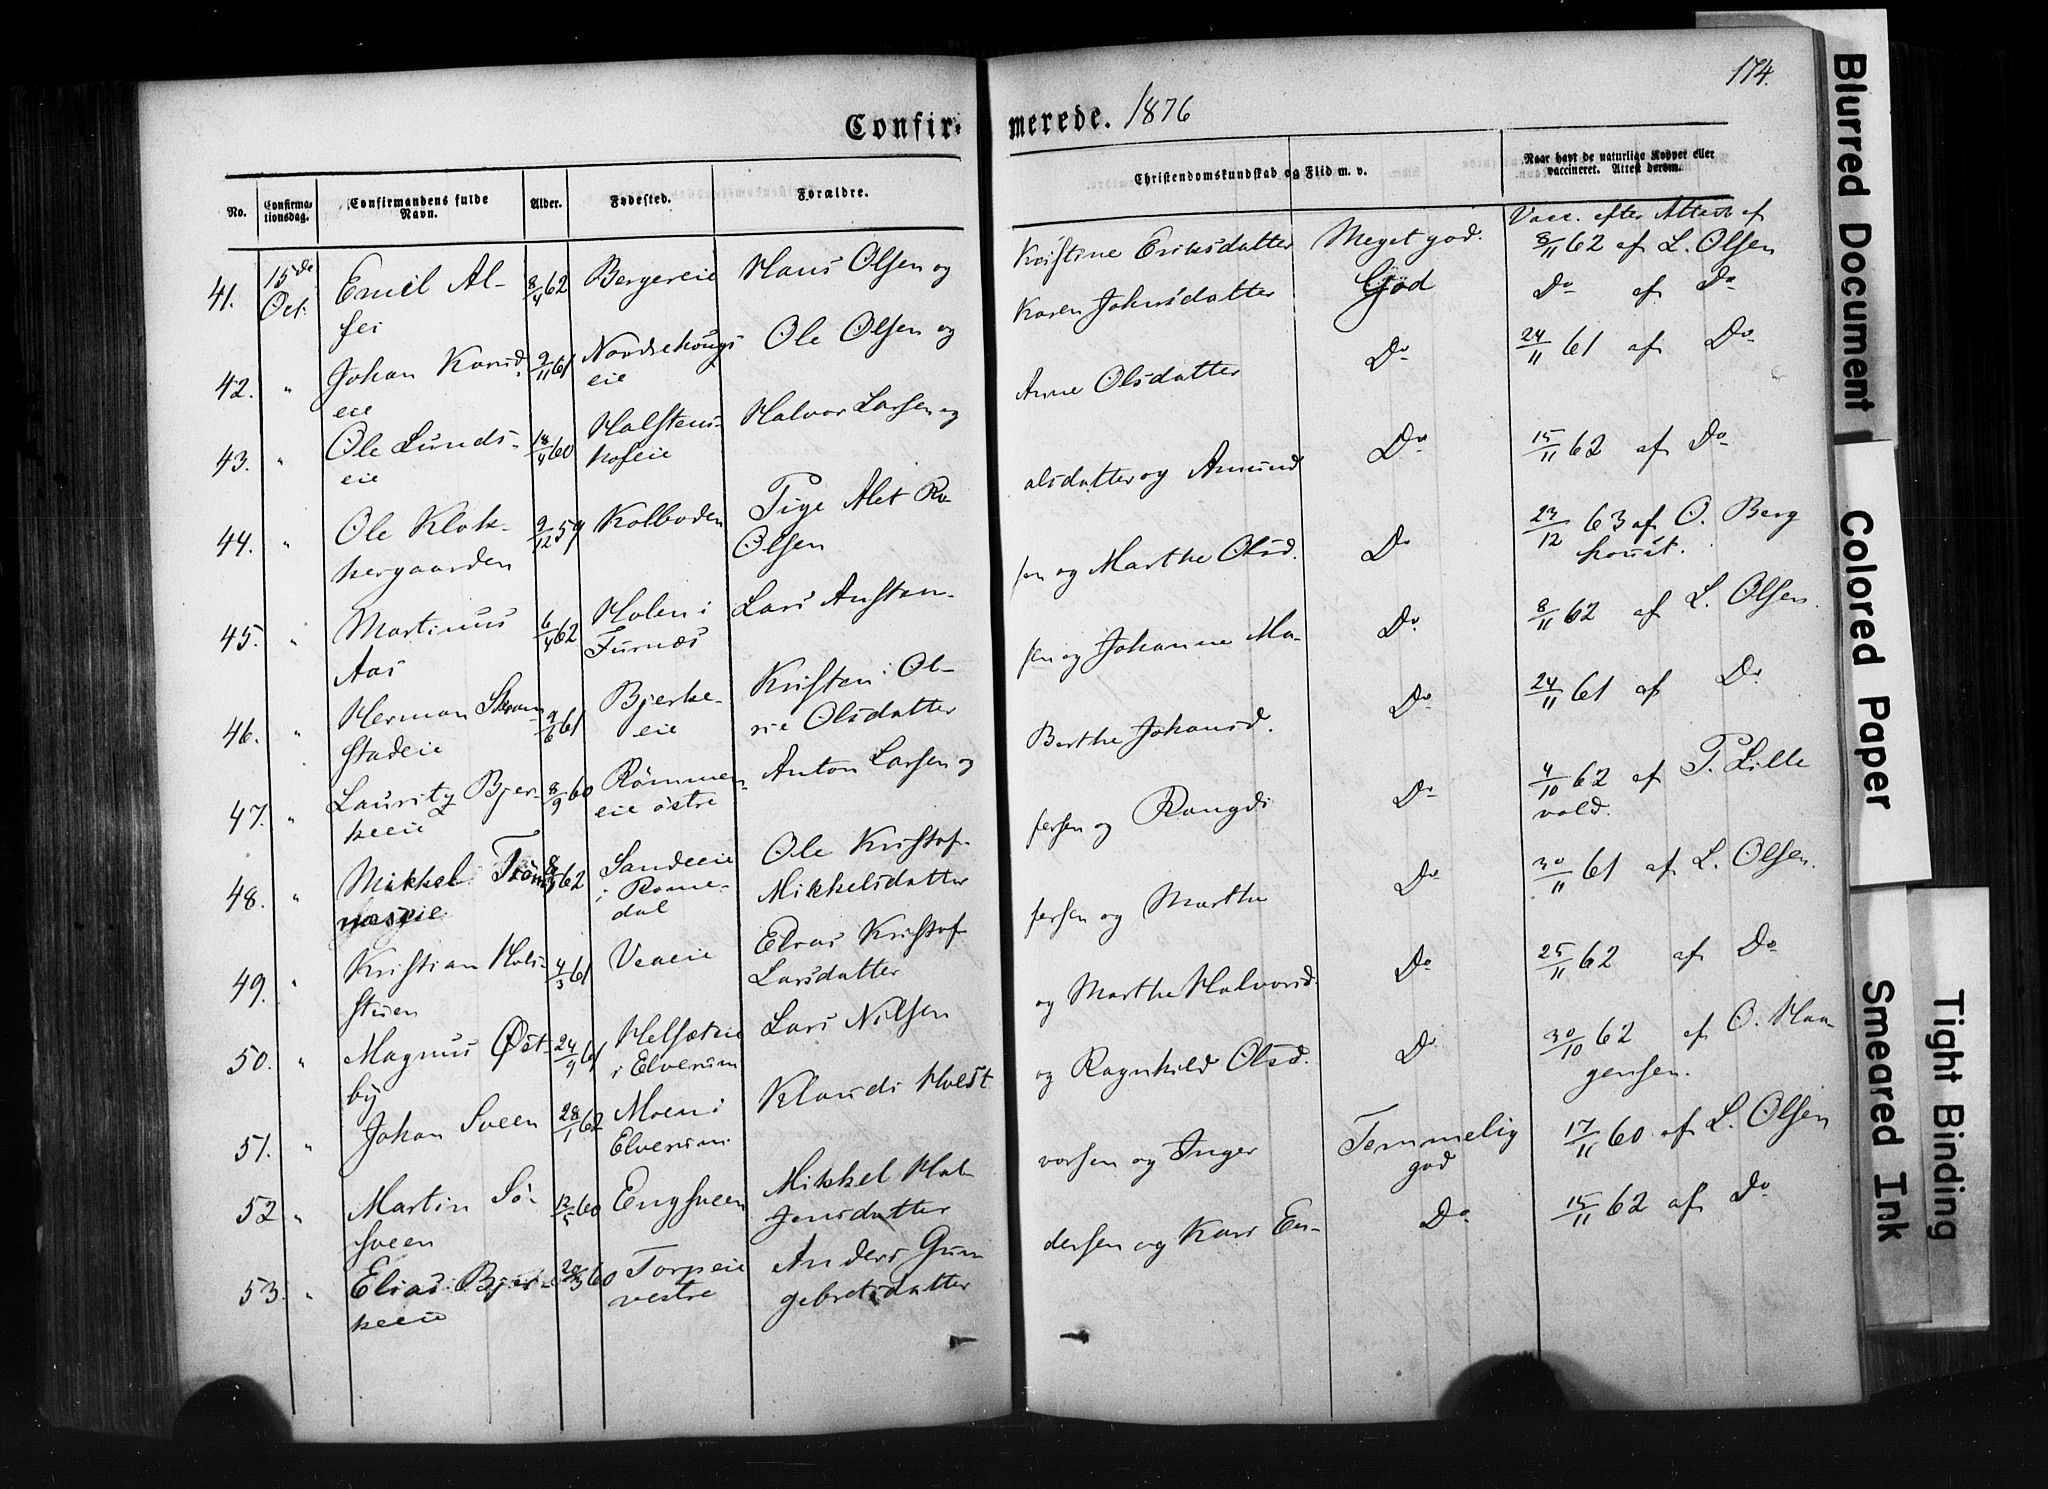 174.
Confirmerede. 1876
No. Confirmationsdag. Confirmandens fulde Navn. Alder. Fødested. Forældre. Christendomskundskab og Flid m. v. Naar havt de naturlige Kopper eller vaccineret. Attest derom.
Vacc. efter Attest af
41. 15de Emil Al- 8/4 62 Bergereie Hans Olsen og Kristine Eriksdatter Meget god. 8/11 62 af L. Olsen
Oct. sei
42. " Johan Konid. 9/11 61 Nordsehougs Ole Olsen og Karen Johnsdatter God Do af Do
eie eie
43. " Ole Lunds- 18/4 60 Halstens- Halvor Larsen og Anne Olsdatter Do 24/11 61 af Do
eie hofeie
44. " Ole Klok- 9/12 59 Kolboden Pige Alet Ro- alsdatter og Amund Do 15/11 62 af Do
kergaarden Olsen
45. " Martinus 6/4 62 Holen i Lars Austen- sen og Marthe Olsd. Do 23/12 63 af O. Berg
Aas Furnæs houst.
46. " Herman Skram- 9/6 61 Bjerke- Kristen Ol- sen og Johanne Ma- Do 8/11 62 af L. Olsen.
stadeie eie rie Olsdatter
47. " Lauritz Bjer- 8/9 60 Rømmen- Anton Larsen og Berthe Johansd. Do 24/11 61 af Do
keeie eie østre
48. " Mikkel 62 Sandeeie Ole Kristof- fersen og Rangdi Do 4/10 62 af P. Lille
næseie i Rome- Mikkelsdatter vold.
dal
49. " Kristian Holi- 4/3 61 Veaeie Elias Kristof- fersen og Marthe Do 30/11 61 af L. Olsen.
stuen Larsdatter
50. " Magnus Øst- 24/9 61 Helsæteie Lars Nilsen og Marthe Halvorsd. Do 25/11 62 af Do
by i Elverum
51. " Johan Sveen 28/1 62 Moen i Klaudi Holst og Ragnhild Olsd. Do 30/10 62 af O. Haa-
Elverum gensen.
52 " Martin Sø- 12/5 60 Engsveen Mikkel Hal- vorsen og Inger Temmelig 17/11 60 af L. Olsen
sveen Jensdatter god
53. " Elias Bjer- 60 Torpeie Anders Gun- dersen og Kari En- Do 15/11 62 af Do
keeie vestre gebretsdatter
Blurred Document
Colored Paper
Smeared Ink
Tight Binding